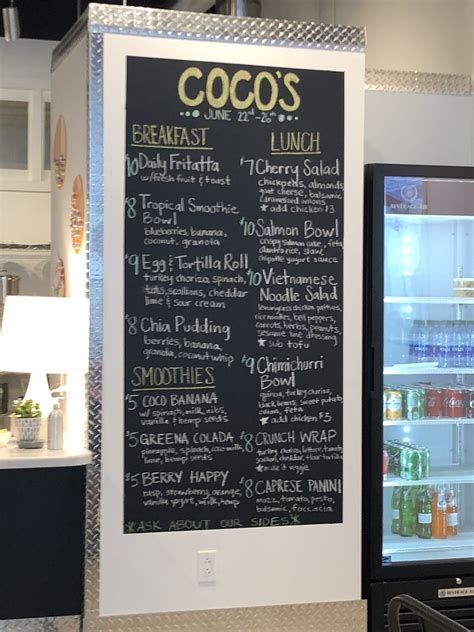 COCO'S
JUNE 22nd-26th
BREAKFAST
$10 Daily Fritatta
w/fresh fruit & toast
$8 Tropical Smoothie
Bowl
blueberries, banana,
coconut, granola
$9 Egg & Tortilla Roll
turkey chorizo, spinach,
tots, scallions, cheddar
lime & sour cream
$8 Chia Pudding
berries, banana,
granola, coconut whip
SMOOTHIES
$5 COCO BANANA
w/ spinach, milk, nibs,
vanilla & hemp seeds
$5 GREENA COLADA
pineapple, spinach, coco milk,
lime, hemp seeds
$5 BERRY HAPPY
rasp, strawberry, orange,
vanilla yogurt, milk, hemp
LUNCH
$7 Cherry Salad
chickpeas, almonds,
goat cheese, balsamic
caramelized onions
★ add chicken $3
$10 Salmon Bowl
crispy salmon cake, feta
cilantro rice, slaw,
chipotle yogurt sauce
$10 Vietnamese
Noodle Salad
lemongrass chicken patties,
rice noodles, bell peppers,
carrots, herbs, peanuts,
sesame lime dressing
★ sub tofu
$9 Chimichurri
Bowl
quinoa, turkey chorizo,
black beans, sweet potato
onions, feta
★ add chicken $3
$8 CRUNCH WRAP
turkey chorizo, lettuce, tomato,
scallions, cheddar, flour tortilla
★ make it veggie
$8 CAPRESE PANINI
mozz, tomato, pesto,
balsamic, foccacia
★ASK ABOUT OUR SIDES★
BEVERAGE-AIR
BEVERAGE-AIR